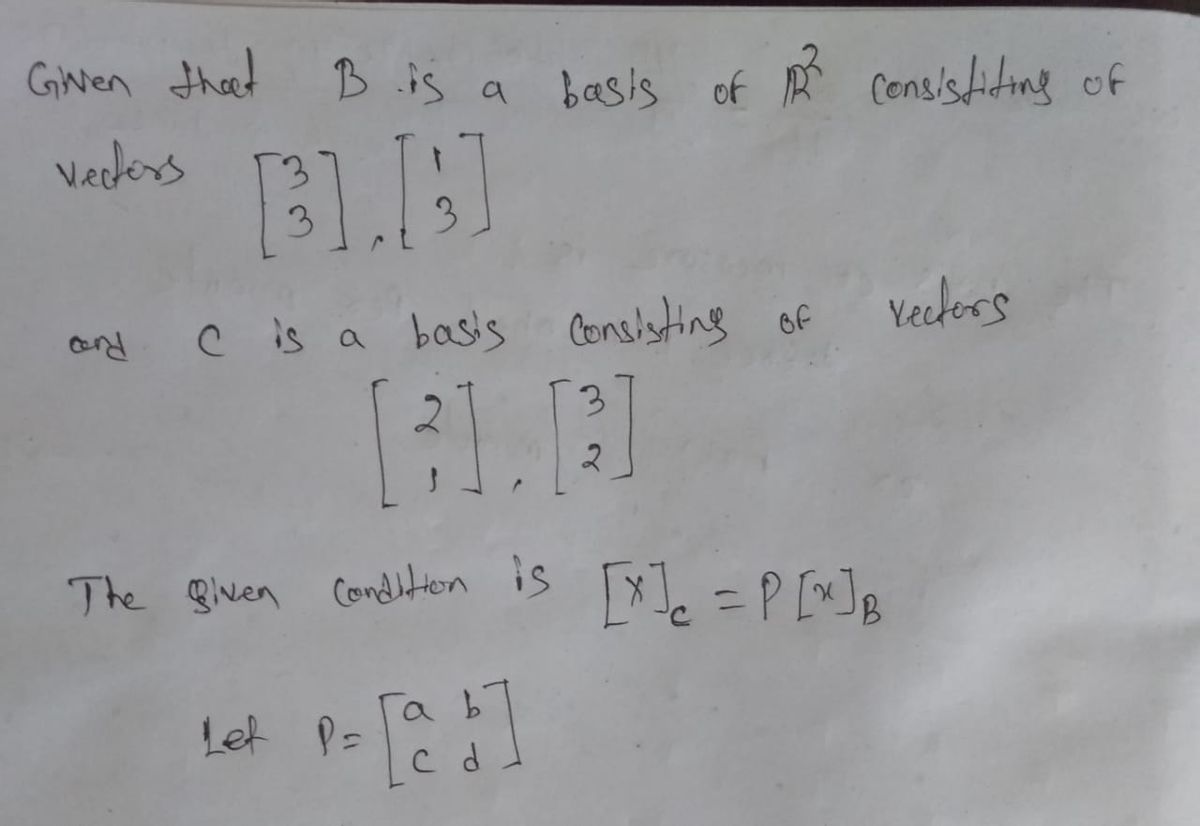 Given that B is a basis of R² consistiting of
vectors [3 3], [1 3]
and C is a basis consisting of vectors
[2 1], [3 2]
The given condition is [x]_C = P[x]_B
Let P = [a b c d]